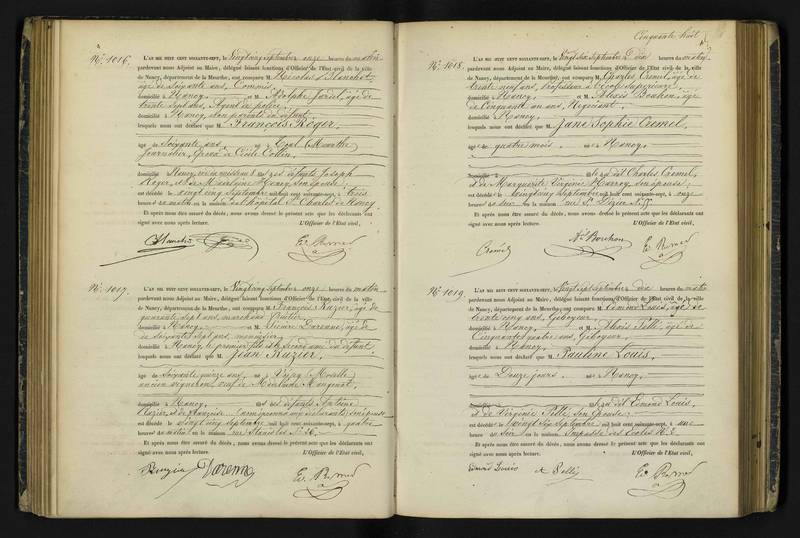 Cinquante huit
N°. 1016.
L'AN MIL HUIT CENT SOIXANTE-SEPT, le Vingtcinq septembre onze heures du matin
pardevant nous Adjoint au Maire, délégué faisant fonctions d'Officier de l'Etat civil de la ville
de Nancy, département de la Meurthe, ont comparu M. Nicolas Blanchot
âgé de soixante ans, Commis
domicilié à Nancy, et M. Adolphe Jardel, âgé de
trente sept ans, Agent de police,
domicilié à Nancy, non parents du défunt,
lesquels nous ont déclaré que M. François Roger,
âgé de Soixante ans né à Toul (Meurthe)
Journalier, époux de Cécile Collin,
domicilié à Nancy, fils des défunts Joseph
Roger, et de Marie Henry, son épouse;
est décédé le vingt cinq septembre mil huit cent soixante-sept, à trois
heures du matin en la maison de l'hôpital St Charles de Nancy
Et après nous être assuré du décès, nous avons dressé le présent acte que les déclarants ont
signé avec nous après lecture. L'Officier de l'Etat civil,
Blanchot
N°. 1017.
L'AN MIL HUIT CENT SOIXANTE-SEPT, le Vingtcinq septembre onze heures du matin
pardevant nous Adjoint au Maire, délégué faisant fonctions d'Officier de l'Etat civil de la ville
de Nancy, département de la Meurthe, ont comparu M. François Razier, âgé de
quarante sept ans, marchand
domicilié à Nancy, et M. Varenne, âgé de
soixante sept ans, menuisier,
domicilié à Nancy, le premier fils et le second ami du défunt
lesquels nous ont déclaré que M. Jean Razier,
âgé de Soixante quinze ans, né à Vigy (Moselle)
ancien vigneron, veuf de Madelaine Mangenot,
domicilié à Nancy, fils des défunts Antoine
Razier, et de Françoise
est décédé le vingt cinq septembre mil huit cent soixante-sept, à quatre
heures du matin en la maison rue Stanislas N° 36.
Et après nous être assuré du décès, nous avons dressé le présent acte que les déclarants ont
signé avec nous après lecture. L'Officier de l'Etat civil,
Varenne
N°. 1018.
L'AN MIL HUIT CENT SOIXANTE-SEPT, le Vingt six septembre Dix heures du matin
pardevant nous Adjoint au Maire, délégué faisant fonctions d'Officier de l'Etat civil de la ville
de Nancy, département de la Meurthe, ont comparu M. Charles Cremel, âgé de
trente neuf ans, Professeur à l'Ecole supérieure
domicilié à Nancy, et M. Alexis Bonhon, âgé
de Cinquante un ans, Négociant
domicilié à Nancy.
lesquels nous ont déclaré que M. Jane Sophie Cremel,
âgée de quatre mois. née à Nancy.
domiciliée à fille dudit Charles Cremel,
et de Marguerite Virginie Harroy son épouse;
est décédée le vingt cinq septembre mil huit cent soixante-sept, à onze
heures du soir en la maison rue St Dizier N° 55
Et après nous être assuré du décès, nous avons dressé le présent acte que les déclarants ont
signé avec nous après lecture. L'Officier de l'Etat civil,
N°. 1019.
L'AN MIL HUIT CENT SOIXANTE-SEPT, le Vingt sept septembre dix heures du matin
pardevant nous Adjoint au Maire, délégué faisant fonctions d'Officier de l'Etat civil de la ville
de Nancy, département de la Meurthe, ont comparu M. Edmond Louis, âgé de
trente cinq ans, Employeur,
domicilié à Nancy, et M. Alexis Pelté, âgé de
Cinquante quatre ans,
domicilié à Nancy.
lesquels nous ont déclaré que M. Pauline Louis,
âgée de Douze jours. née à Nancy.
domiciliée à fille dudit Edmond Louis,
et de Virginie Pelté son épouse;
est décédée le vingt six septembre mil huit cent soixante-sept, à une
heure du soir en la maison Impasse des Ecoles N° 6
Et après nous être assuré du décès, nous avons dressé le présent acte que les déclarants ont
signé avec nous après lecture. L'Officier de l'Etat civil,
Edmond Louis